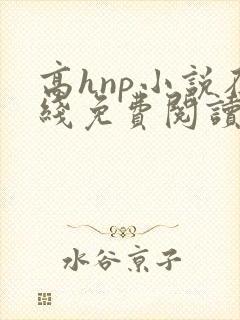 高hnp小說在
綫免費閱讀
水谷京子